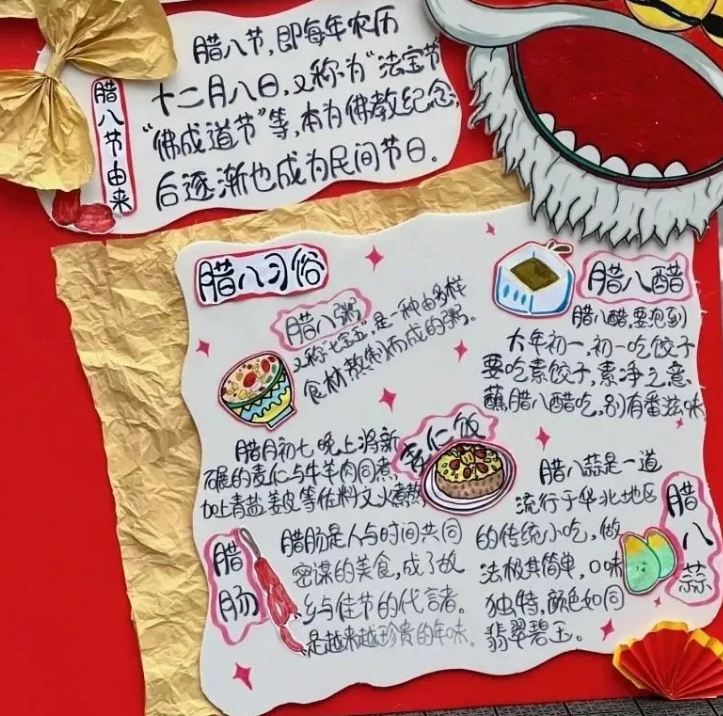 腊八节由来
腊八节,即每年农历
十二月八日,又称为“法宝节
“佛成道节”等,本为佛教纪念,
后逐渐也成为民间节日。
腊八习俗
腊八粥
又称“七宝五”是一种由多样
食材熬制而成的粥。
腊八醋
腊八醋,要泡到
大年初一,初一吃饺子
要吃素饺子,素净之意
蘸腊八醋吃,别有番滋味
麦仁饭
腊月初七晚上将新
碾的麦仁与牛羊肉同煮
加上青盐姜皮等佐料文火煮熬
腊八蒜
腊八蒜是一道
流行于华北地区
的传统小吃,做
法极其简单,口味
独特,颜色如同
翡翠碧玉。
腊肠
腊肠是人与时间共同
密谋的美食,成了故
乡与佳节的代言者。
是越来越珍贵的年味.